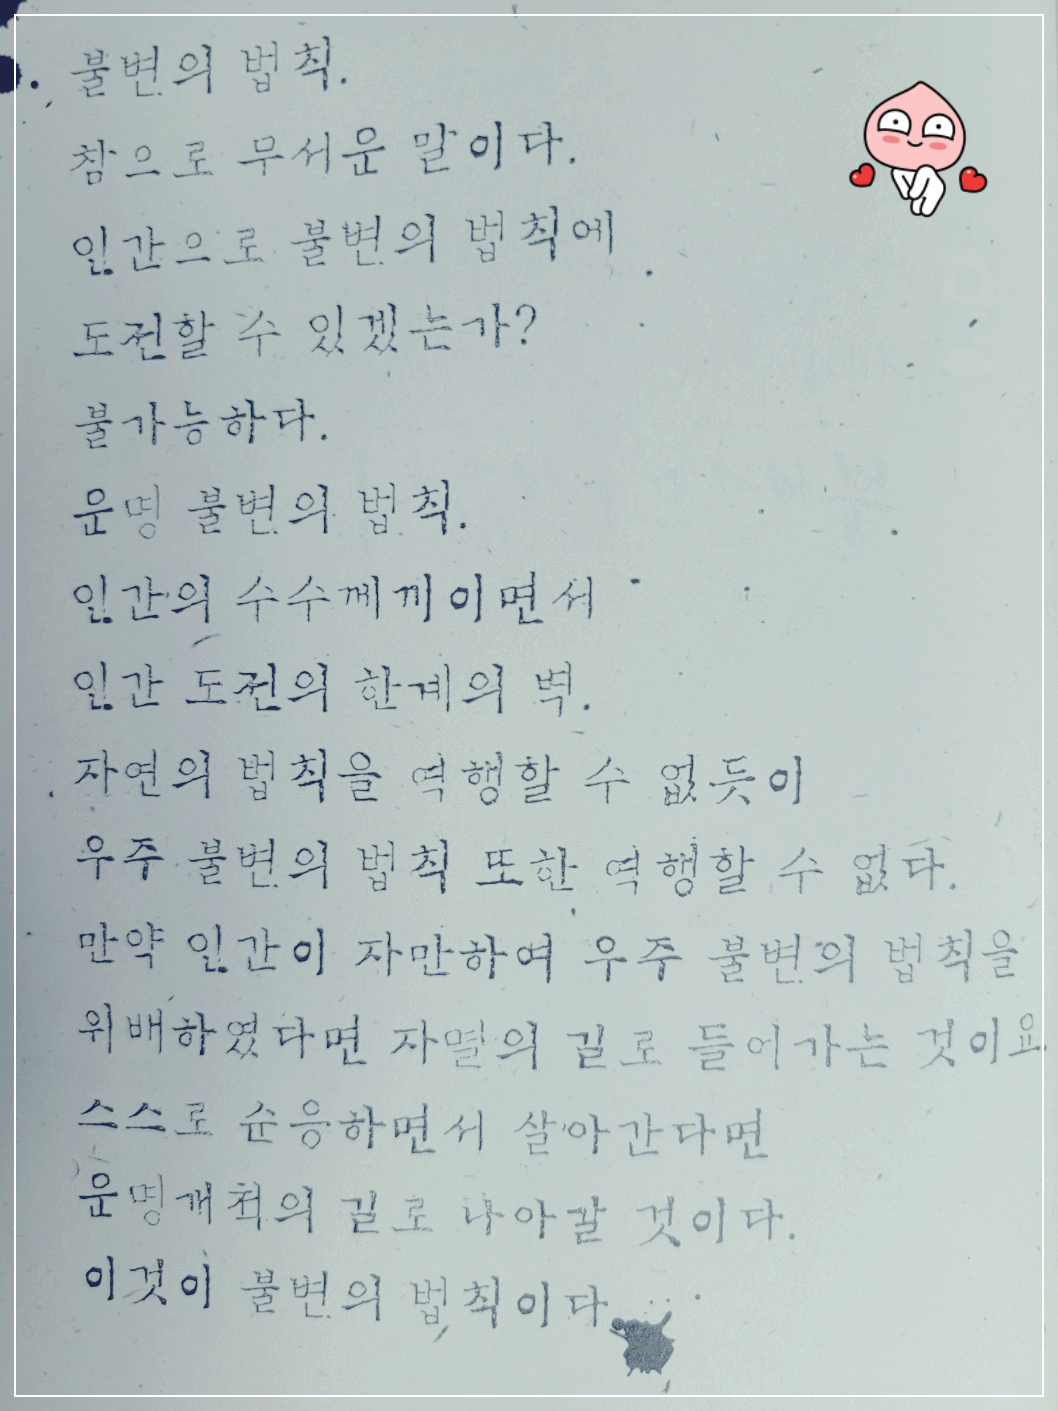 불변의 법칙.
참으로 무서운 말이다.
인간으로 불변의 법칙에
도전할 수 있겠는가?
불가능하다.
운명 불변의 법칙.
인간의 수수께끼이면서
인간 도전의 한계의 벽.
자연의 법칙을 역행할 수 없듯이
우주 불변의 법칙 또한 역행할 수 없다.
만약 인간이 자만하여 우주 불변의 법칙을
위배하였다면 자멸의 길로 들어가는 것이요
스스로 순응하면서 살아간다면
운명개척의 길로 나아갈 것이다.
이것이 불변의 법칙이다